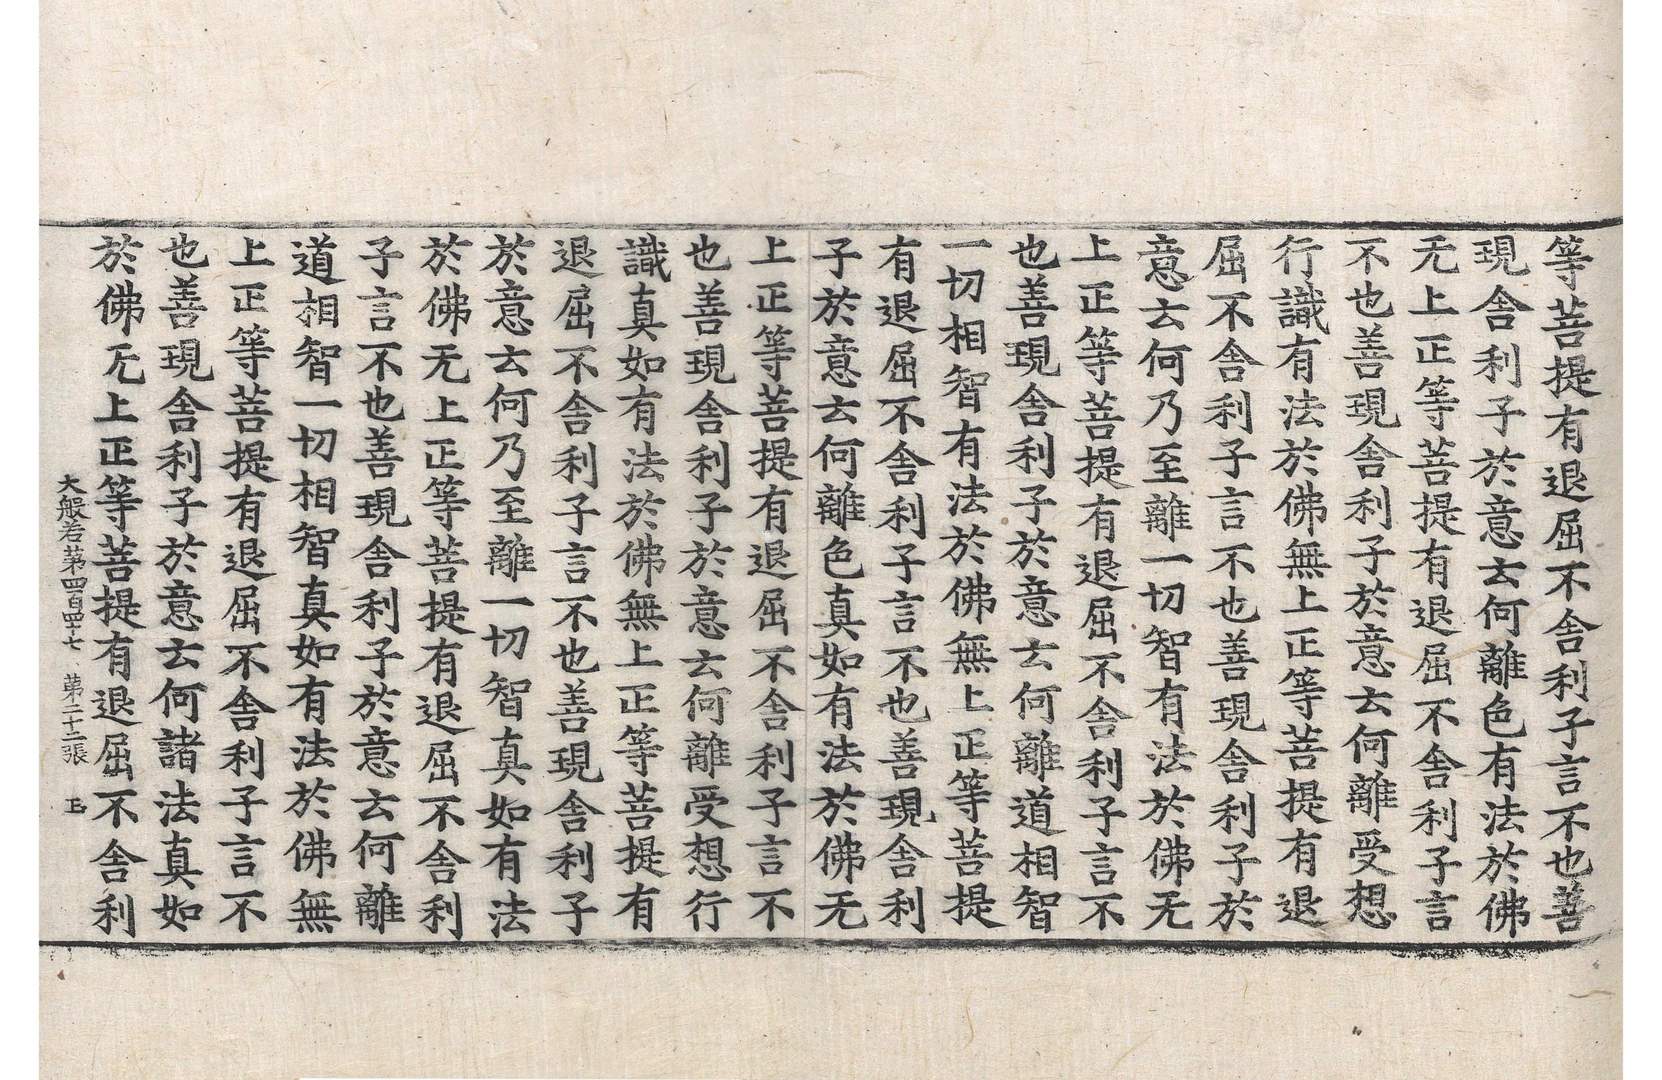 等菩提有退屈不舍利子言不也善
現舍利子於意云何離色有法於佛
无上正等菩提有退屈不舍利子言
不也善現舍利子於意云何離受想
行識有法於佛無上正等菩提有退
屈不舍利子言不也善現舍利子於
意云何乃至離一切智有法於佛无
上正等菩提有退屈不舍利子言不
也善現舍利子於意云何離道相智
一切相智有法於佛無上正等菩提
有退屈不舍利子言不也善現舍利
子於意云何離色真如有法於佛无
上正等菩提有退屈不舍利子言不
也善現舍利子於意云何離受想行
識真如有法於佛無上正等菩提有
退屈不舍利子言不也善現舍利子
於意云何乃至離一切智真如有法
於佛无上正等菩提有退屈不舍利
子言不也善現舍利子於意云何離
道相智一切相智真如有法於佛無
上正等菩提有退屈不舍利子言不
也善現舍利子於意云何諸法真如
於佛无上正等菩提有退屈不舍利
大般若第四百四七 第二十二張